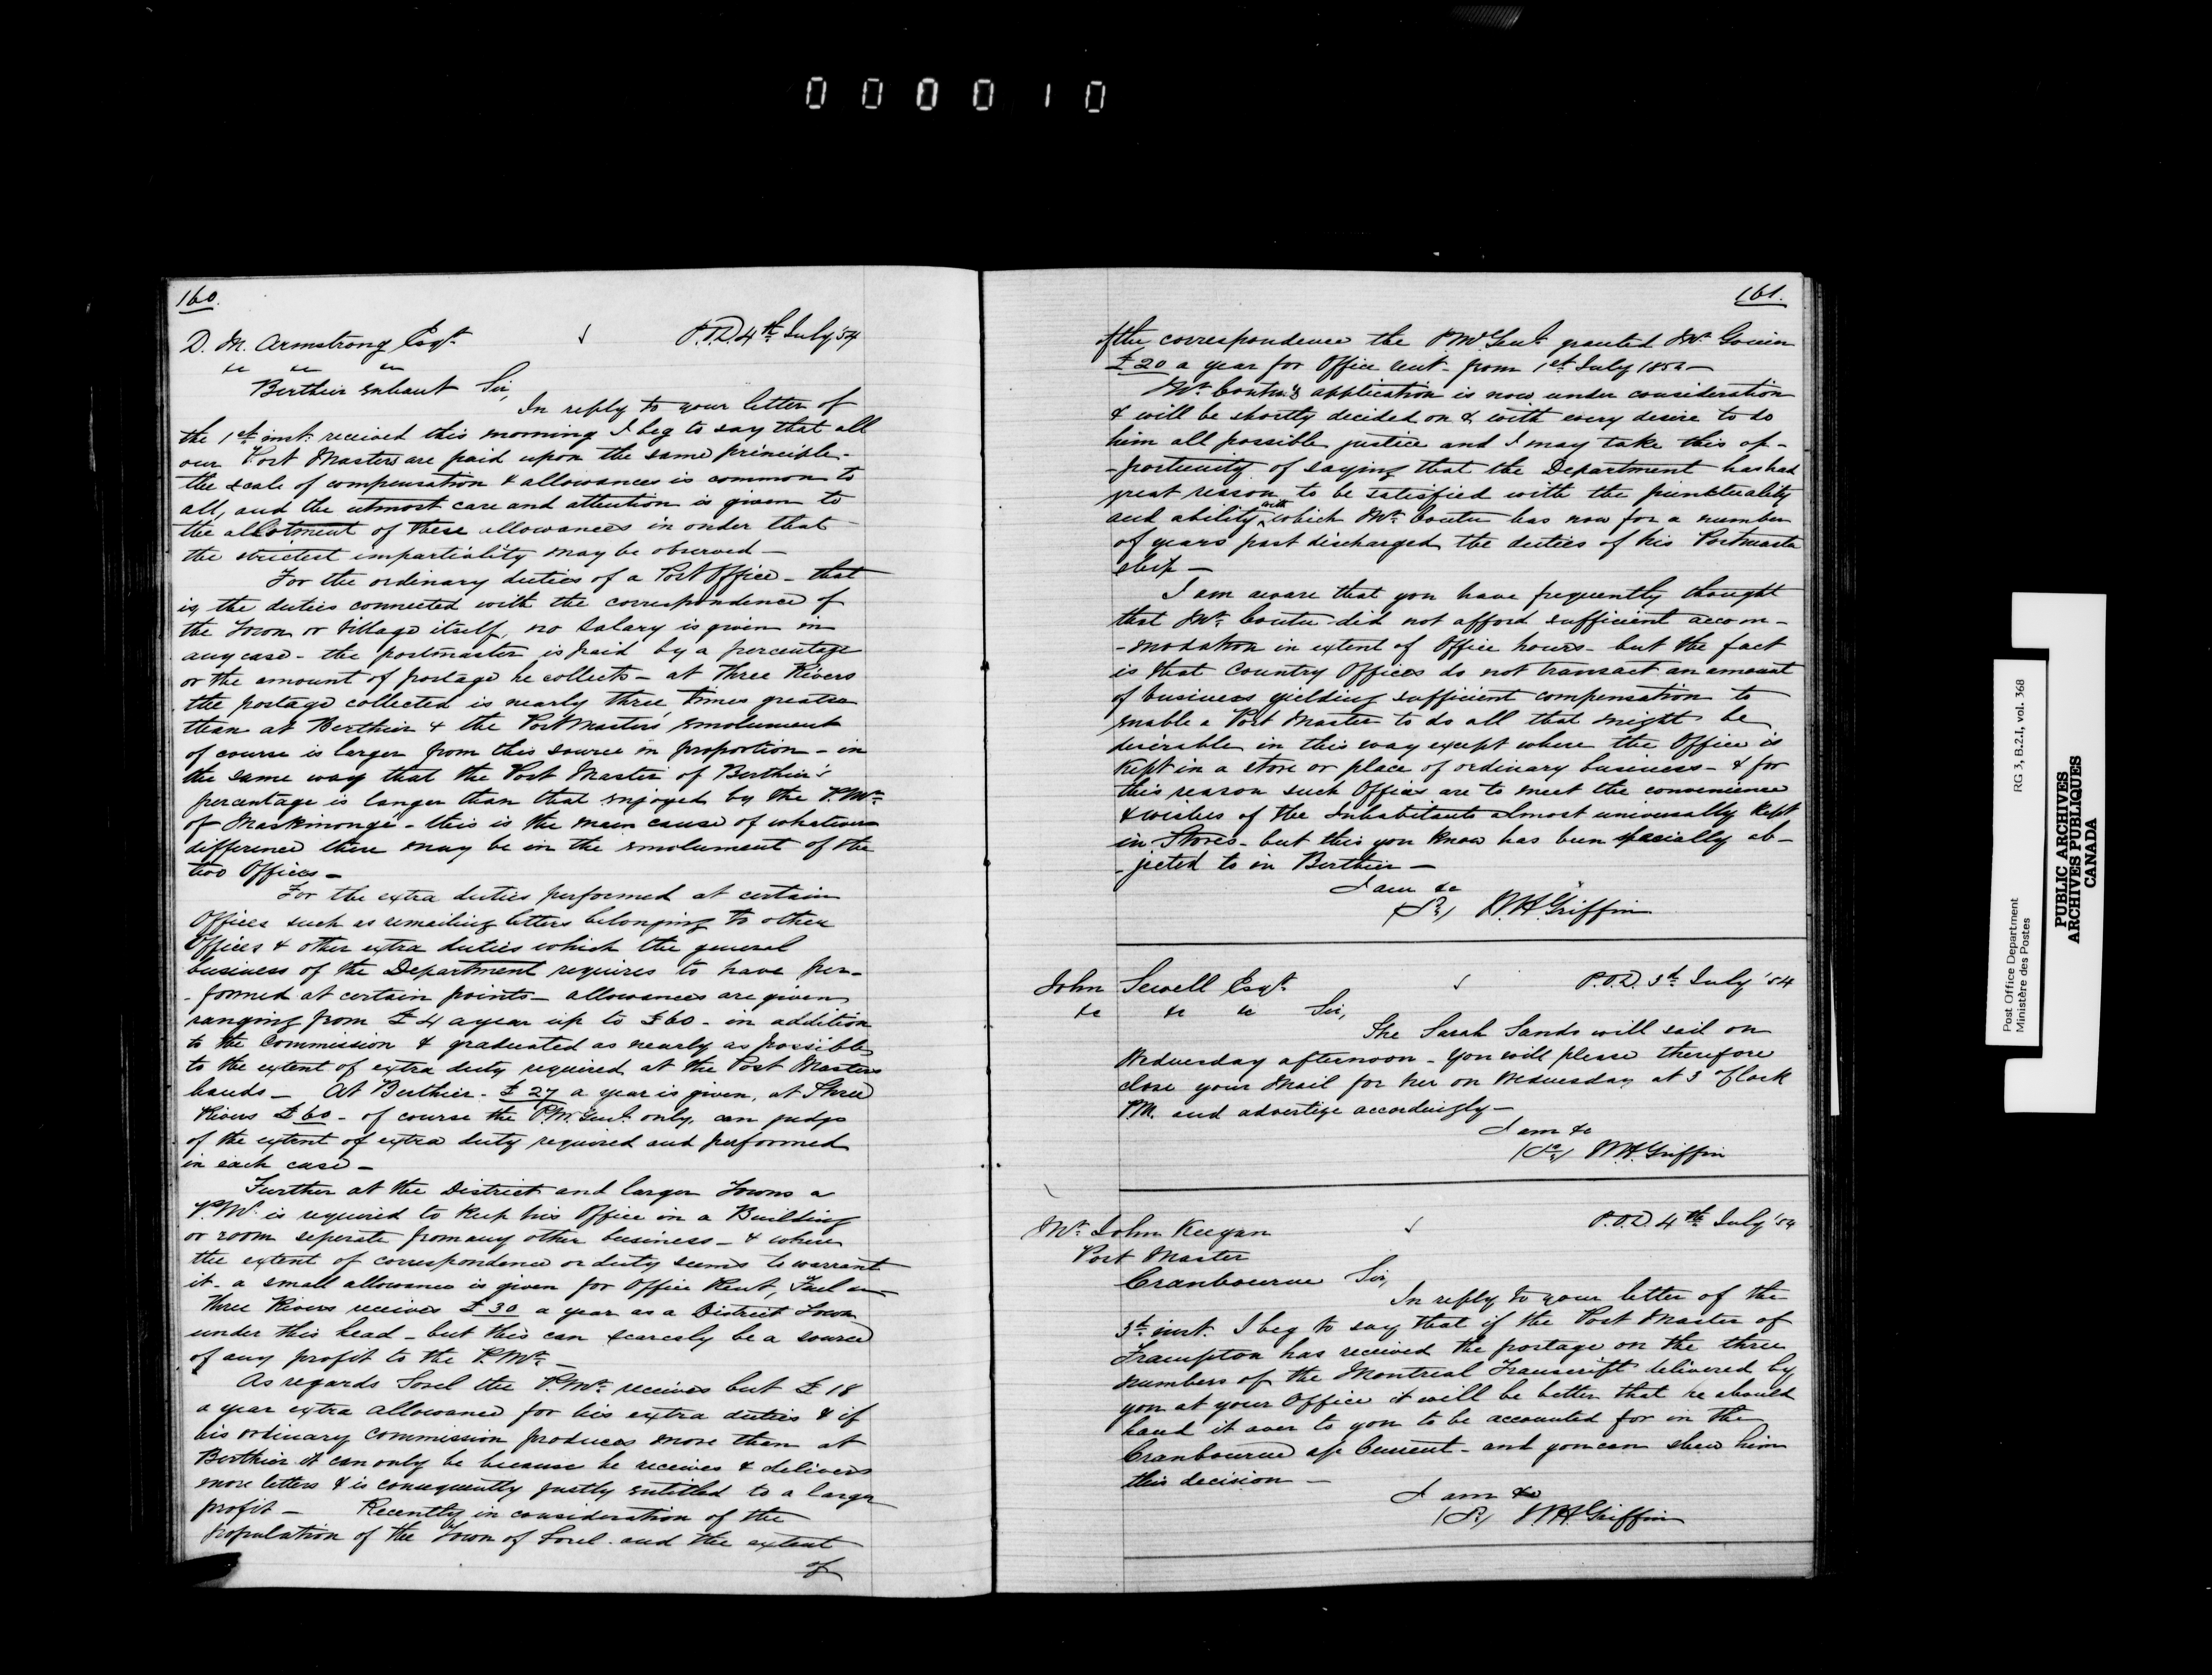 000010
160.
D. M. Armstrong Esqr. P.O.D. 4th July '54
&c &c &c
Berthier enhaut Sir,
In reply to your letter of
the 1st inst. received this morning I beg to say that all
our Post Masters are paid upon the same principle -
the scale of compensation & allowances is common to
all, and the utmost care and attention is given to
the allotment of these allowances in order that
the strictest impartiality may be observed -
For the ordinary duties of a Post Office - that
is, the duties connected with the correspondence of
the Town or Village itself, no salary is given in
any case - the postmaster is paid by a percentage
or the amount of postage he collects - at Three Rivers
the postage collected is nearly three times greater
than at Berthier & the PostMaster's emolument
of course is larger from this source in proportion - in
the same way that the Post Master of Berthier's
percentage is larger than that enjoyed by the P.Mr.
of Maskinongé - this is the main cause of whatever
difference there may be in the emolument of the
two Offices -
For the extra duties performed at certain
Offices such as remailing letters belonging to other
Offices & other extra duties which the general
business of the Department requires to have per-
-formed at certain points - allowances are given
ranging from £4 a year up to £60 - in addition
to the Commission & graduated as nearly as possible
to the extent of extra duty required at the Post Masters
hands - At Berthier - £27 a year is given, at Three
Rivers £60 - of course the P.M. Genl. only, can judge
of the extent of extra duty required and performed
in each case -
Further at the District and larger Towns a
P.Mr. is required to keep his Office in a Building
or room seperate from any other business - & where
the extent of correspondence or duty seems to warrant
it - a small allowance is given for Office Rent, Fuel &c
Three Rivers receives £30 a year as a District Town
under this head - but this can scarcely be a source
of any profit to the P.Mr. -
As regards Sorel the P.Mr. receives but £18
a year extra allowance for his extra duties & if
his ordinary Commission produces more than at
Berthier it can only be because he receives & delivers
more letters & is consequently justly entitled to a larger
profit - Recently in consideration of the
population of the Town of Sorel and the extent
of
161.
of the correspondence the P.M. Genl. granted Mr.
£20 a year for Office rent - from 1st July
Mr. Coutu's application is now under consideration
& will be shortly decided on & with every desire to do
him all possible justice and I may take this op-
-portunity of saying that the Department has had
great reason to be satisfied with the punktuality
and ability with which Mr. Coutu has now for a number
of years past discharged the duties of his Postmaster
ship -
I am aware that you have frequently thought
that Mr. Coutu did not afford sufficient accom-
-modation in extent of Office hours - but the fact
is that Country Offices do not transact an amount
of business yielding sufficient compensation to
enable a Post Master to do all that might be
desirable in this way except where the Office is
kept in a store or place of ordinary business - & for
this reason such Offices are to meet the convenience
& wishes of the Inhabitants almost universally kept
in Stores - but this you know has been specially ob-
-jected to in Berthier -
I am &c
(Sd.) W.H. Griffin
John Sewell Esqr. P.O.D. 3d. July '54
&c &c &c Sir,
The Sarah Sands will sail on
Wednesday afternoon - you will please therefore
close your Mail for her on Wednesday at 3 o'Clock
P.M. and advertize accordingly -
I am &c
(Sd.) W.H. Griffin
Mr. John Keegan P.O.D. 4th July '54
Post Master
Cranbourne Sir,
In reply to your letter of the
3d. inst. I beg to say that if the Post Master of
Frampton has received the postage on the three
numbers of the Montreal Transcript delivered by
you at your Office it will be better that he should
hand it over to you to be accounted for in the
Cranbourne a/c Current - and you can shew him
this decision -
I am &c
(Sd.) W.H. Griffin
Post Office Department
Ministère des Postes
RG 3, B.2.1, vol. 368
PUBLIC ARCHIVES
ARCHIVES PUBLIQUES
CANADA